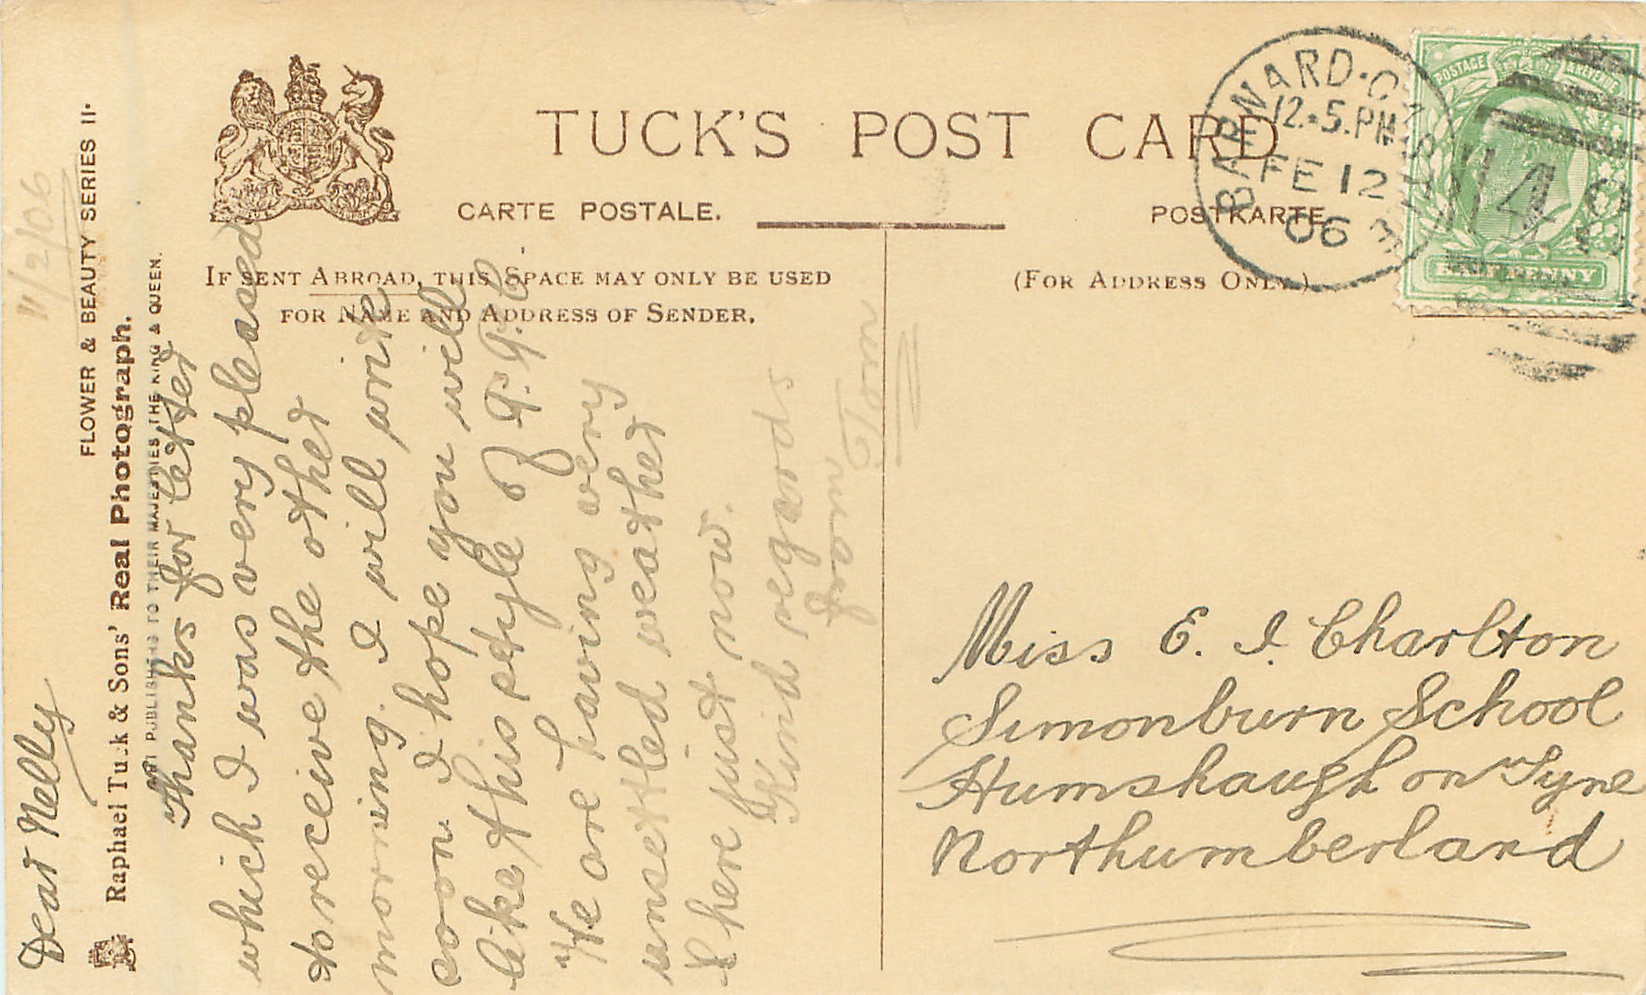 TUCK'S POST CARD
CARTE POSTALE.
POSTKARTE.
IF SENT ABROAD, THIS SPACE MAY ONLY BE USED
FOR NAME AND ADDRESS OF SENDER.
(FOR ADDRESS ONLY.)
BARWARD
12.5.PM
FE 12
06
POSTAGE & REVENUE
HALFPENNY
FLOWER & BEAUTY SERIES II.
Raphael Tuck & Sons' Real Photograph.
ART PUBLISHERS TO THEIR MAJESTIES THE KING & QUEEN.
11/2/06
Dear Nelly
Thanks for letter
which I was very pleased
to receive the other
morning. I will write
soon. I hope you will
like this style of P.P.C.
We are having very
unsettled weather
here just now.
Kind regards
from
Tom
Miss E. I. Charlton
Simonburn School
Humshaugh on Tyne
Northumberland